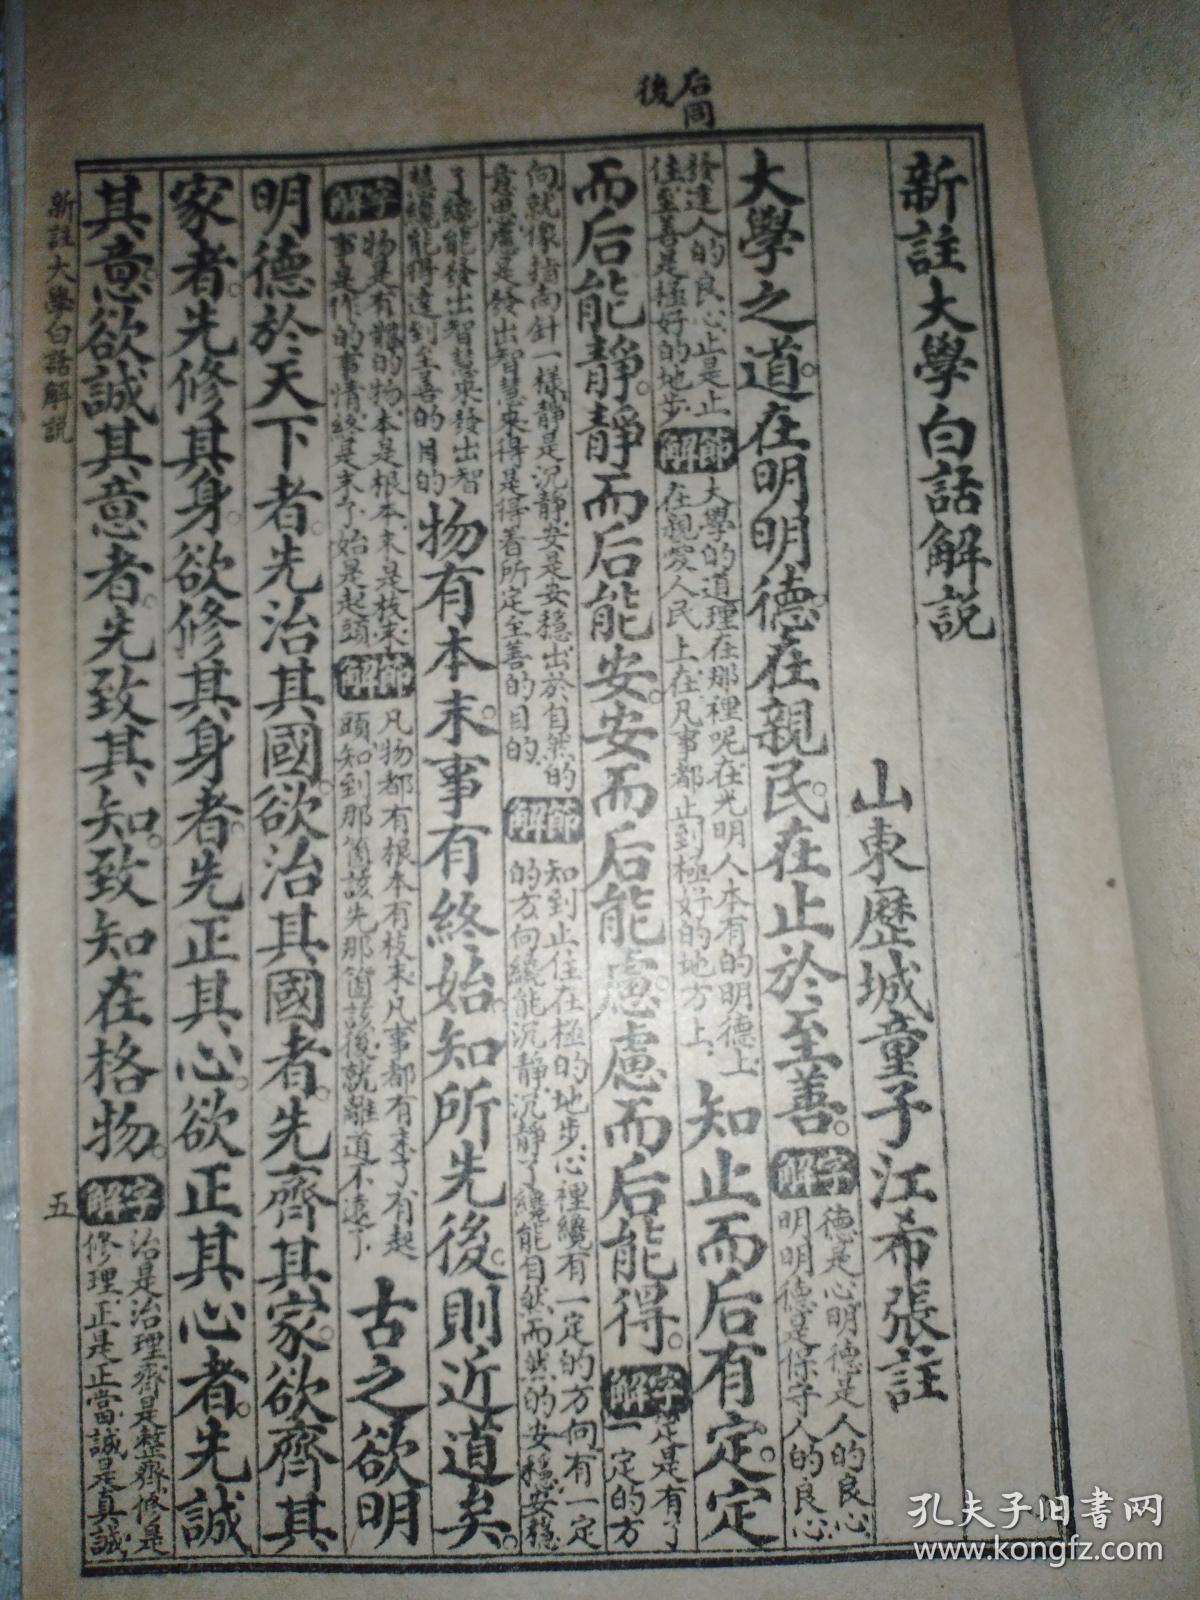 后同
後
新註大學白話解説
山東歷城童子江希張註
大學之道。在明明德。在親民。在止於至善。字解
德是心明德是人的良心
明明德是保守人的良心
發達人的良心止是止
住至善是極好的地步
節解
大學的道理在那裡呢在光明人本有的明德上
在親愛人民上在凡事都止到極好的地方上
知止而后有定。定
而后能靜。靜而后能安。安而后能慮。慮而后能得。字解
定是有了
一定的方
向就像指南針一樣靜是沉靜安是安穩出於自然的
意思慮是發出智慧來得是得着所定至善的目的
節解
知到止住在極的地步心裡纔有一定的方向有一定
的方向纔能沉靜沉靜了纔能自然而然的安穩安穩
了纔能發出智慧來發出智
慧纔能得達到至善的目的
物有本末。事有終始。知所先後。則近道矣。
字解
物是有體的物本是根本末是枝末
事是作的事情終是末了始是起頭
節解
凡物都有根本有枝末凡事都有末了有起
頭知到那箇該先那箇該後就離道不遠了
古之欲明
明德於天下者。先治其國。欲治其國者。先齊其家。欲齊其
家者。先修其身。欲修其身者。先正其心。欲正其心者。先誠
其意。欲誠其意者。先致其知。致知在格物。字解
治是治理齊是整齊修是
修理正是正當誠是真誠
新註大學白話解説
五
孔夫子旧書网
www.kongfz.com